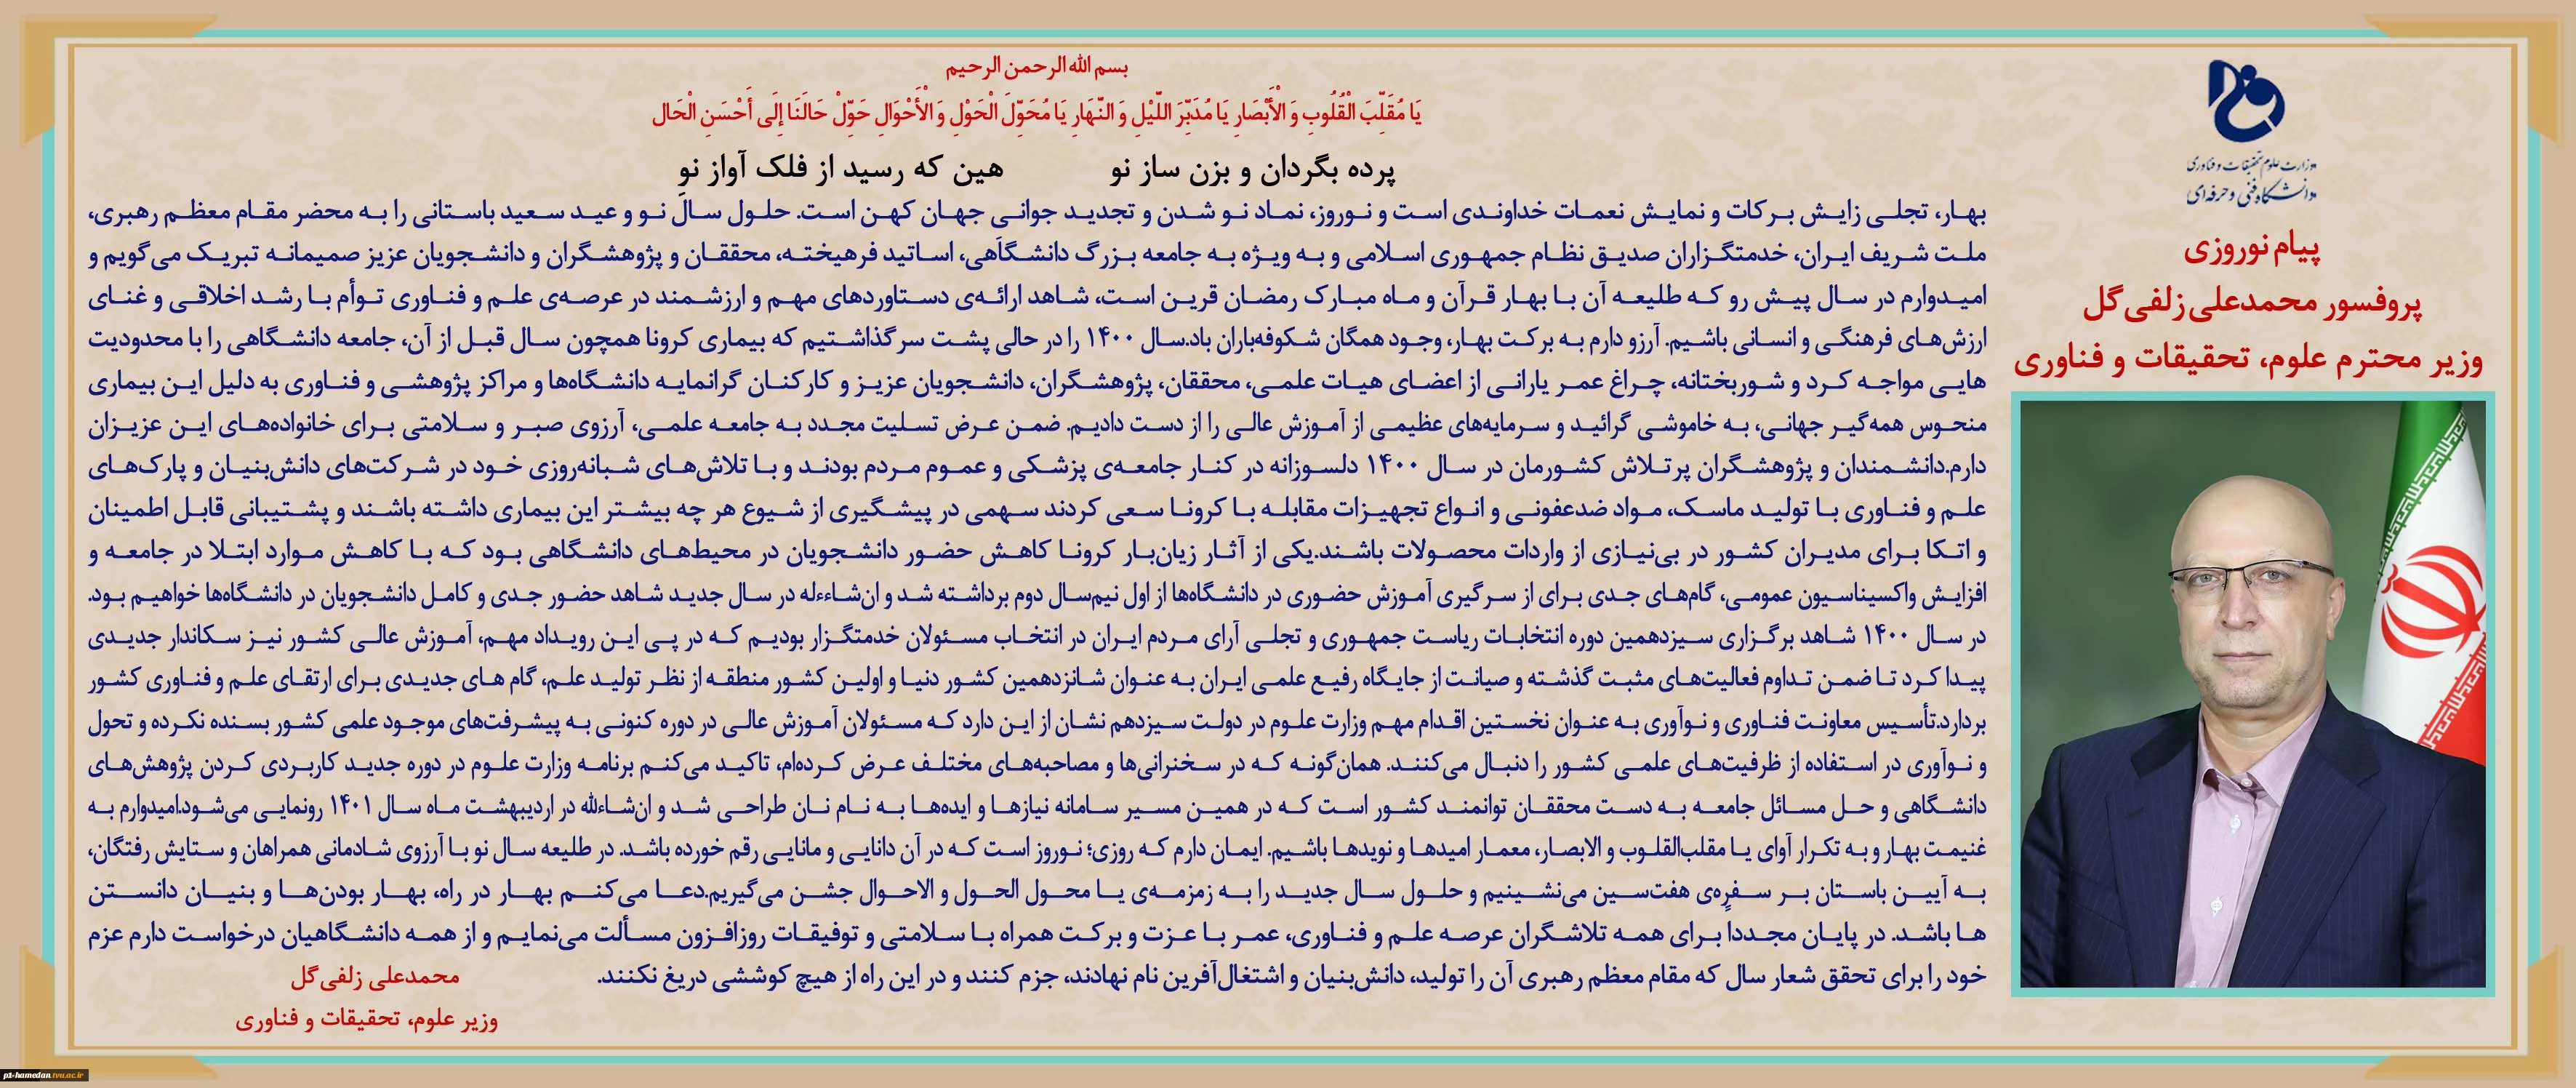 وزارت علوم تحقیقات و فناوری
دانشگاه فنی و حرفه‌ای
پیام نوروزی
پروفسور محمدعلی زلفی‌گل
وزیر محترم علوم، تحقیقات و فناوری
بسم الله الرحمن الرحیم
يَا مُقَلِّبَ الْقُلُوبِ وَ الْأَبْصَارِ يَا مُدَبِّرَ اللَّيْلِ وَ النَّهَارِ يَا مُحَوِّلَ الْحَوْلِ وَ الْأَحْوَالِ حَوِّلْ حَالَنَا إِلَى أَحْسَنِ الْحَال
پرده بگردان و بزن ساز نو هین که رسید از فلک آواز نو
بهار، تجلی زایش برکات و نمایش نعمات خداوندی است و نوروز، نماد نو شدن و تجدید جوانی جهان کهن است. حلول سال نو و عید سعید باستانی را به محضر مقام معظم رهبری،
ملت شریف ایران، خدمتگزاران صدیق نظام جمهوری اسلامی و به ویژه به جامعه بزرگ دانشگاهی، اساتید فرهیخته، محققان و پژوهشگران و دانشجویان عزیز صمیمانه تبریک می‌گویم و
امیدوارم در سال پیش رو که طلیعه آن با بهار قرآن و ماه مبارک رمضان قرین است، شاهد ارائه‌ی دستاوردهای مهم و ارزشمند در عرصه‌ی علم و فناوری توأم با رشد اخلاقی و غنای
ارزش‌های فرهنگی و انسانی باشیم. آرزو دارم به برکت بهار، وجود همگان شکوفه‌باران باد.سال ۱۴۰۰ را در حالی پشت سر گذاشتیم که بیماری کرونا همچون سال قبل از آن، جامعه دانشگاهی را با محدودیت
هایی مواجه کرد و شوربختانه، چراغ عمر یارانی از اعضای هیات علمی، محققان، پژوهشگران، دانشجویان عزیز و کارکنان گرانمایه دانشگاه‌ها و مراکز پژوهشی و فناوری به دلیل این بیماری
منحوس همه‌گیر جهانی، به خاموشی گرائید و سرمایه‌های عظیمی از آموزش عالی را از دست دادیم. ضمن عرض تسلیت مجدد به جامعه علمی، آرزوی صبر و سلامتی برای خانواده‌های این عزیزان
دارم.دانشمندان و پژوهشگران پرتلاش کشورمان در سال ۱۴۰۰ دلسوزانه در کنار جامعه‌ی پزشکی و عموم مردم بودند و با تلاش‌های شبانه‌روزی خود در شرکت‌های دانش‌بنیان و پارک‌های
علم و فناوری با تولید ماسک، مواد ضدعفونی و انواع تجهیزات مقابله با کرونا سعی کردند سهمی در پیشگیری از شیوع هر چه بیشتر این بیماری داشته باشند و پشتیبانی قابل اطمینان
و اتکا برای مدیران کشور در بی‌نیازی از واردات محصولات باشند.یکی از آثار زیان‌بار کرونا کاهش حضور دانشجویان در محیط‌های دانشگاهی بود که با کاهش موارد ابتلا در جامعه و
افزایش واکسیناسیون عمومی، گام‌های جدی برای از سرگیری آموزش حضوری در دانشگاه‌ها از اول نیم‌سال دوم برداشته شد و ان‌شاءءله در سال جدید شاهد حضور جدی و کامل دانشجویان در دانشگاه‌ها خواهیم بود.
در سال ۱۴۰۰ شاهد برگزاری سیزدهمین دوره انتخابات ریاست جمهوری و تجلی آرای مردم ایران در انتخاب مسئولان خدمتگزار بودیم که در پی این رویداد مهم، آموزش عالی کشور نیز سکاندار جدیدی
پیدا کرد تا ضمن تداوم فعالیت‌های مثبت گذشته و صیانت از جایگاه رفیع علمی ایران به عنوان شانزدهمین کشور دنیا و اولین کشور منطقه از نظر تولید علم، گام های جدیدی برای ارتقای علم و فناوری کشور
بردارد.تأسیس معاونت فناوری و نوآوری به عنوان نخستین اقدام مهم وزارت علوم در دولت سیزدهم نشان از این دارد که مسئولان آموزش عالی در دوره کنونی به پیشرفت‌های موجود علمی کشور بسنده نکرده و تحول
و نوآوری در استفاده از ظرفیت‌های علمی کشور را دنبال می‌کنند. همان‌گونه که در سخنرانی‌ها و مصاحبه‌های مختلف عرض کرده‌ام، تاکید می‌کنم برنامه وزارت علوم در دوره جدید کاربردی کردن پژوهش‌های
دانشگاهی و حل مسائل جامعه به دست محققان توانمند کشور است که در همین مسیر سامانه نیازها و ایده‌ها به نام نان طراحی شد و ان‌شاءلله در اردیبهشت ماه سال ۱۴۰۱ رونمایی می‌شود.امیدوارم به
غنیمت بهار و به تکرار آوای یا مقلب‌القلوب و الابصار، معمار امیدها و نویدها باشیم. ایمان دارم که روزی؛ نوروز است که در آن دانایی و مانایی رقم خورده باشد. در طلیعه سال نو با آرزوی شادمانی همراهان و ستایش رفتگان،
به آیین باستان بر سفره‌ی هفت‌سین می‌نشینیم و حلول سال جدید را به زمزمه‌ی یا محول الحول و الاحوال جشن می‌گیریم.دعا می‌کنم بهار در راه، بهار بودن‌ها و بنیان دانستن
ها باشد. در پایان مجددا برای همه تلاشگران عرصه علم و فناوری، عمر با عزت و برکت همراه با سلامتی و توفیقات روزافزون مسألت می‌نمایم و از همه دانشگاهیان درخواست دارم عزم
خود را برای تحقق شعار سال که مقام معظم رهبری آن را تولید، دانش‌بنیان و اشتغال‌آفرین نام نهادند، جزم کنند و در این راه از هیچ کوششی دریغ نکنند.
محمدعلی زلفی‌گل
وزیر علوم، تحقیقات و فناوری
p1-hamedan.tvu.ac.ir